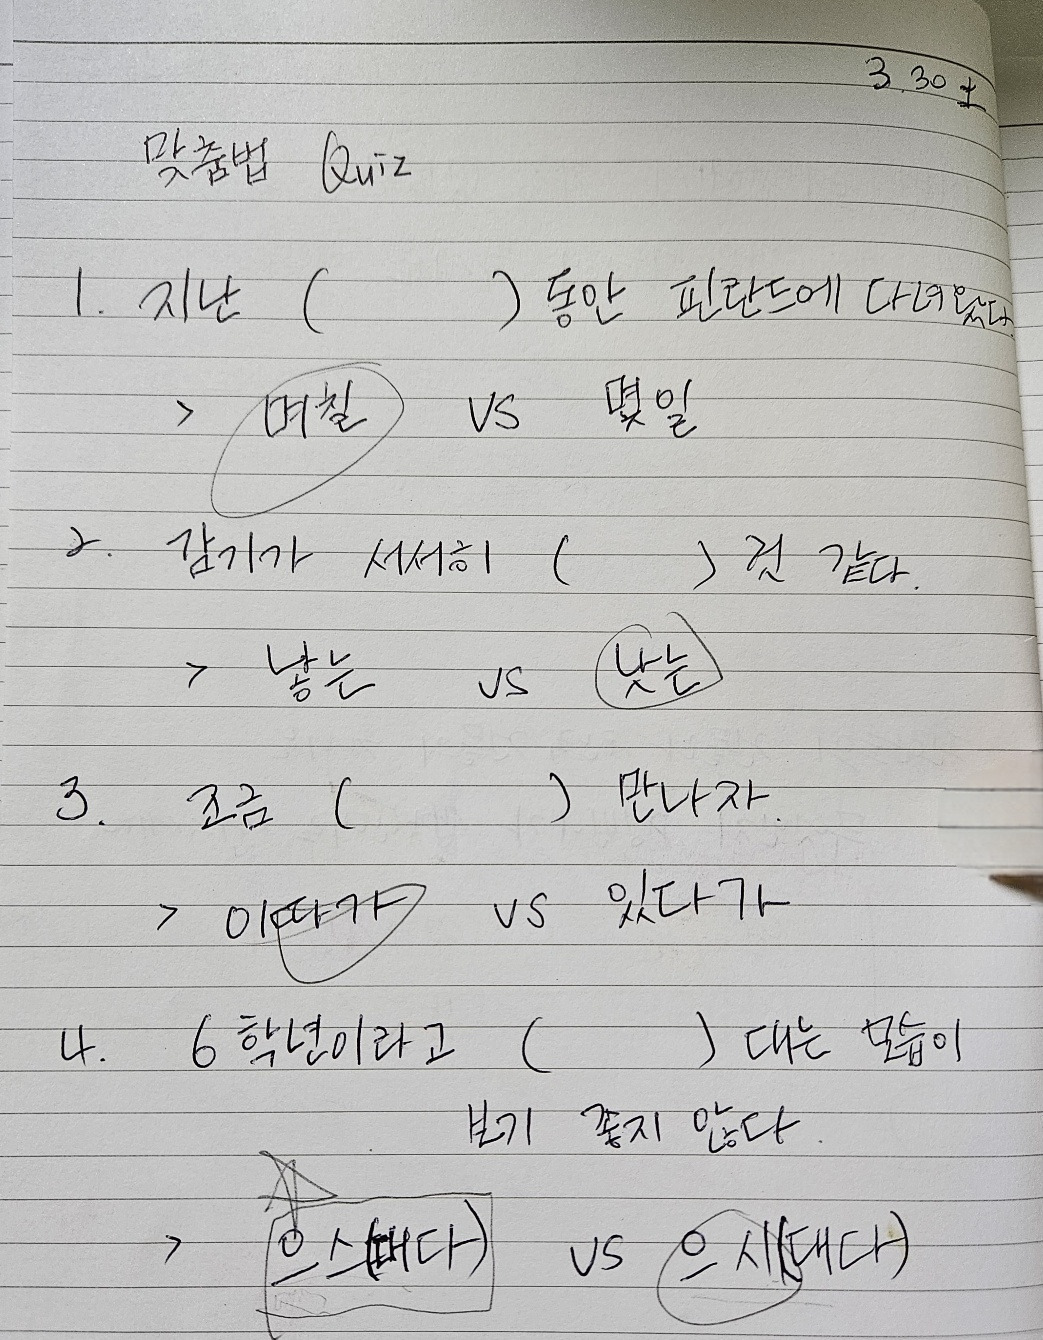 3.30 토
맞춤법 Quiz
1. 지난 ( ) 동안 핀란드에 다녀왔다
> 며칠 vs 몇일
2. 감기가 서서히 ( ) 것 같다.
> 낳는 vs 낫는
3. 조금 ( ) 만나자.
> 이따가 vs 있다가
4. 6학년이라고 ( ) 대는 모습이
보기 좋지 않다.
> 으스(대다) vs 으시(대다)